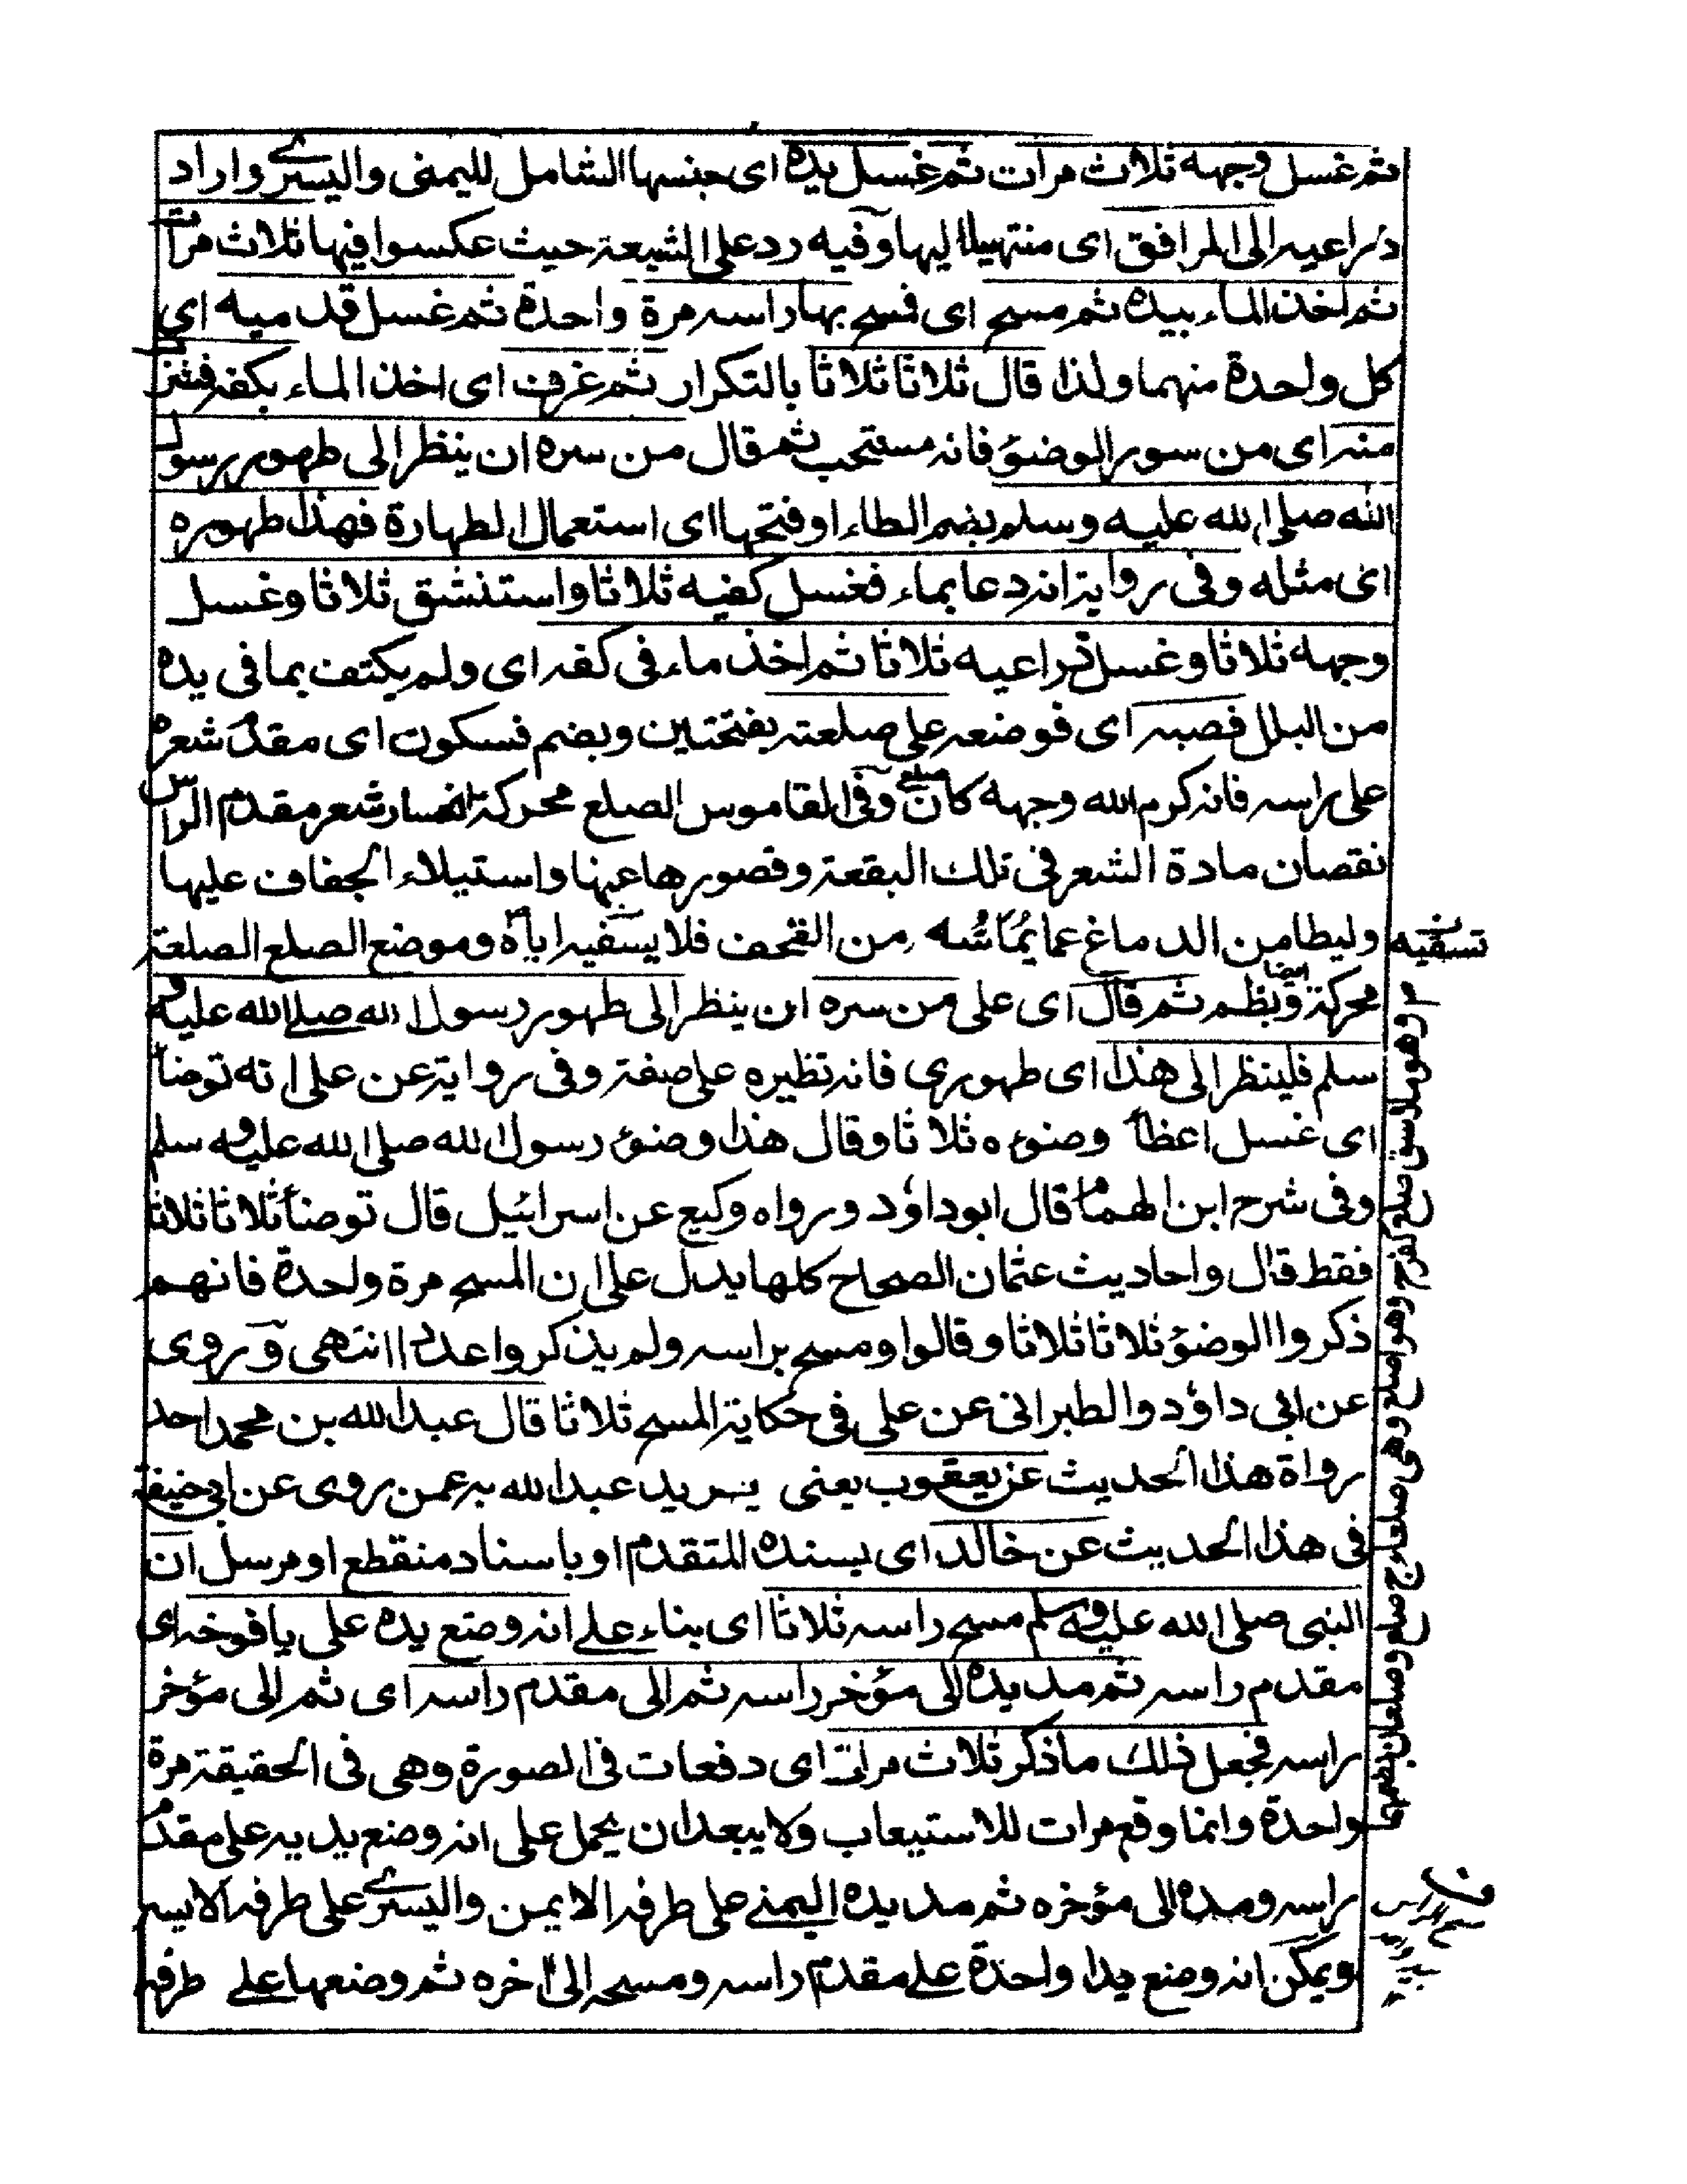 ثم غسل وجهه ثلاث مرات ثم غسل يده اى جنسها الشامل لليمنى واليسرى واراد
ذراعيه الى المرافق اى منتهيا اليها وفيه رد على الشيعة حيث عكسوا فيها ثلاث مرات
ثم اخذ الماء بيده ثم مسح اى فمسح بها راسه مرة واحدة ثم غسل قدميه اى
كل واحدة منهما ولذا قال ثلاثا ثلاثا بالتكرار ثم غرف اى اخذ الماء بكفه فشرب
منه اى من سور الوضوٴ فانه مستحب ثم قال من سره ان ينظر الى طهور رسول
الله صلى الله عليه وسلم بضم الطاء او فتحها اى استعمال الطهارة فهذا طهوره
اى مثله وفى رواية انه دعا بماء فغسل كفيه ثلاثا واستنشق ثلاثا وغسل
وجهه ثلاثا وغسل ذراعيه ثلاثا ثم اخذ ماء فى كفه اى ولم يكتف بما فى يده
من البلل فصبه اى فوضعه على صلعته بفتحتين وبضم فسكون اى مقدم شعره
على راسه فانه كرم الله وجهه كان صلع وفى القاموس الصلع محركة انحسار شعر مقدم الراس
نقصان مادة الشعر فى تلك البقعة وقصورها عنها واستيلاء الجفاف عليها
وليطامن الدماغ عما يماسّه من القحف فلا يسقيه اياه وموضع الصلع الصلعة
محركة وبظم ايضا ثم قال اى على من سره ان ينظر الى طهور رسول الله صلى الله عليه و
سلم فلينظر الى هذا اى طهورى فانه نظيره على صفة وفى رواية عن على انه توضا
اى غسل اعظا وضوءه ثلاثا وقال هذا وضوء رسول الله صلى الله عليه و سلم
وفى شرح ابن الهمام قال ابو داؤد ورواه وكيع عن اسرائيل قال توضأ ثلاثا ثلاثا
فقط قال واحاديث عثمان الصحاح كلها يدل على ان المسح مرة واحدة فانهم
ذكروا الوضوٴ ثلاثا ثلاثا وقالوا ومسح براسه ولم يذكروا عددا انتهى وروى
عن ابى داؤد والطبرانى عن على فى حكاية المسح ثلاثا قال عبد الله بن محمد احد
رواة هذا الحديث عن يعقوب يعنى يريد عبد الله به عمن روى عن ابى حنيفة
فى هذا الحديث عن خالد اى بسنده المتقدم او باسناد منقطع او مرسل ان
النبى صلى الله عليه وسلم مسح راسه ثلاثا اى بناء على انه وضع يده على يافوخه اى
مقدم راسه ثم مد يده الى مؤخر راسه ثم الى مقدم راسه اى ثم الى مؤخر
راسه فجعل ذلك ماذكر ثلاث مرات اى دفعات فى الصورة وهى فى الحقيقة مرة
واحدة وانما وقع مرات للاستيعاب ولا يبعد ان يحمل على انه وضع يديه على مقدم
راسه ومده الى مؤخره ثم مد يده اليمنى على طرفه الايمن واليسرى على طرفه الايسر
ويمكن انه وضع يدا واحدة على مقدم راسه ومسحه الى اخره ثم وضعها على طرفه
تسقيه